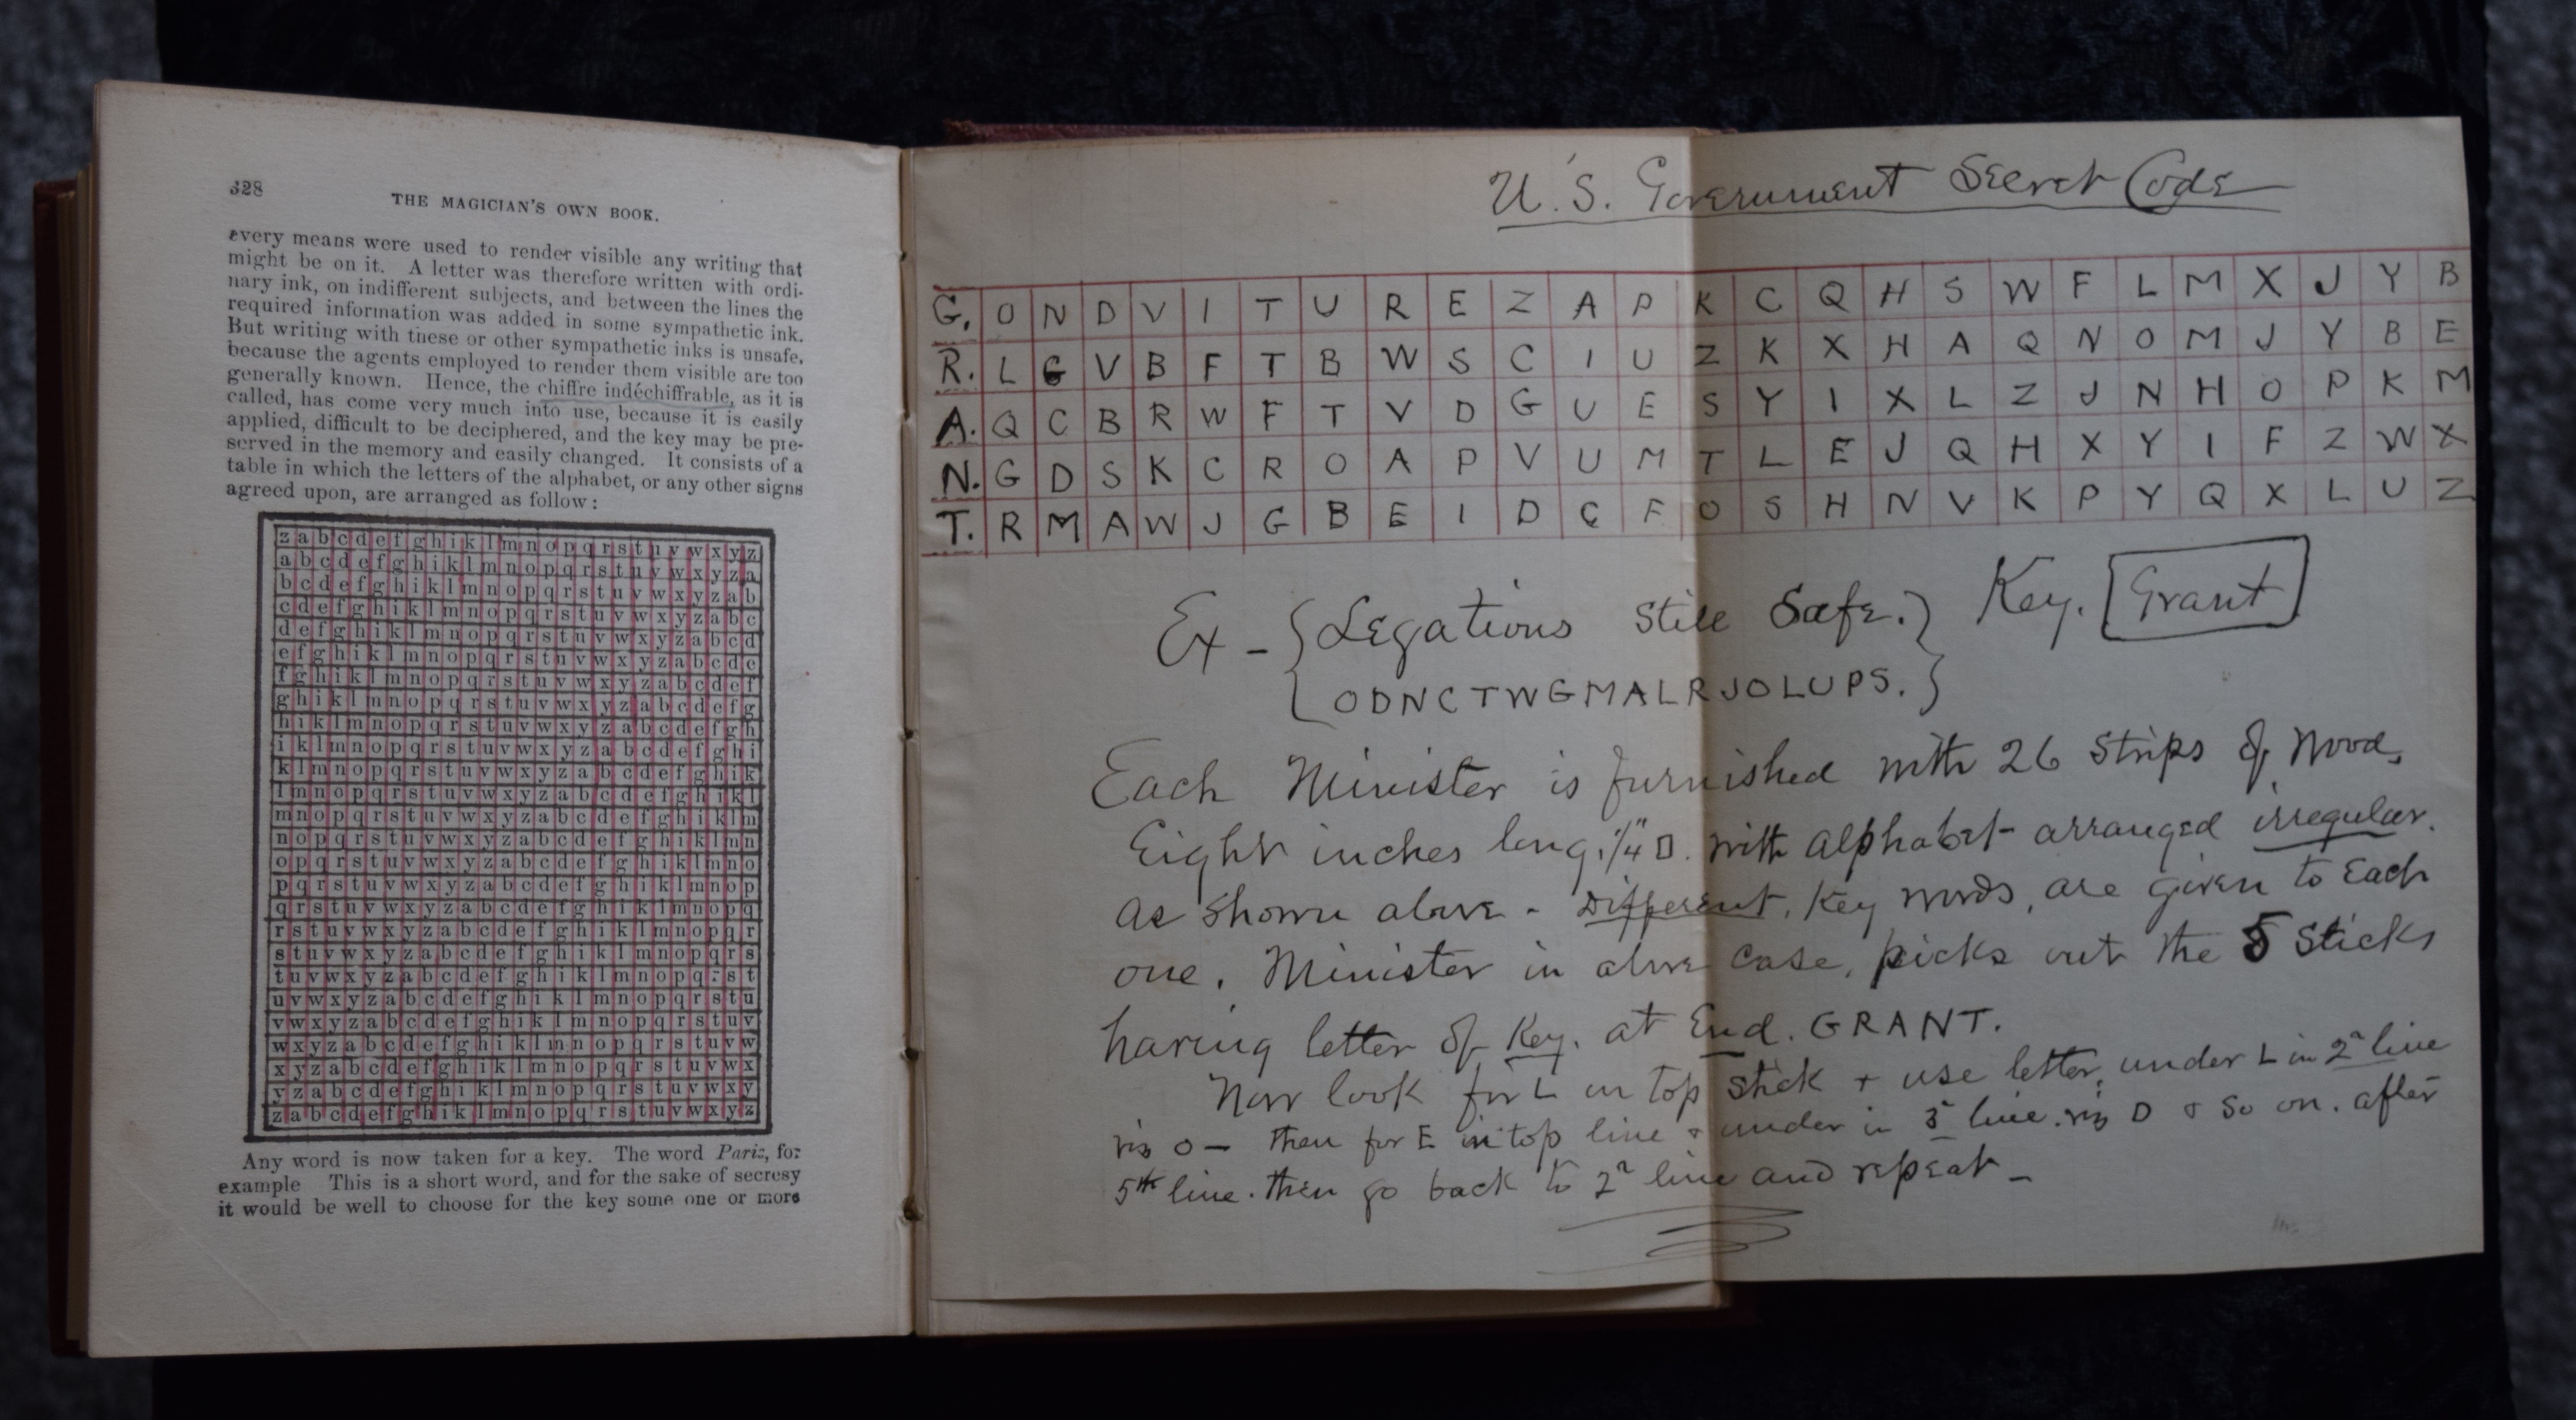 328
THE MAGICIAN'S OWN BOOK.
every means were used to render visible any writing that
might be on it. A letter was therefore written with ordi-
nary ink, on indifferent subjects, and between the lines the
required information was added in some sympathetic ink.
But writing with these or other sympathetic inks is unsafe,
because the agents employed to render them visible are too
generally known. Hence, the chiffre indéchiffrable, as it is
called, has come very much into use, because it is easily
applied, difficult to be deciphered, and the key may be pre-
served in the memory and easily changed. It consists of a
table in which the letters of the alphabet, or any other signs
agreed upon, are arranged as follow:
z a b c d e f g h i k l m n o p q r s t u v w x y z
a b c d e f g h i k l m n o p q r s t u v w x y z a
b c d e f g h i k l m n o p q r s t u v w x y z a b
c d e f g h i k l m n o p q r s t u v w x y z a b c
d e f g h i k l m n o p q r s t u v w x y z a b c d
e f g h i k l m n o p q r s t u v w x y z a b c d e
f g h i k l m n o p q r s t u v w x y z a b c d e f
g h i k l m n o p q r s t u v w x y z a b c d e f g
h i k l m n o p q r s t u v w x y z a b c d e f g h
i k l m n o p q r s t u v w x y z a b c d e f g h i
k l m n o p q r s t u v w x y z a b c d e f g h i k
l m n o p q r s t u v w x y z a b c d e f g h i k l
m n o p q r s t u v w x y z a b c d e f g h i k l m
n o p q r s t u v w x y z a b c d e f g h i k l m n
o p q r s t u v w x y z a b c d e f g h i k l m n o
p q r s t u v w x y z a b c d e f g h i k l m n o p
q r s t u v w x y z a b c d e f g h i k l m n o p q
r s t u v w x y z a b c d e f g h i k l m n o p q r
s t u v w x y z a b c d e f g h i k l m n o p q r s
t u v w x y z a b c d e f g h i k l m n o p q r s t
u v w x y z a b c d e f g h i k l m n o p q r s t u
v w x y z a b c d e f g h i k l m n o p q r s t u v
w x y z a b c d e f g h i k l m n o p q r s t u v w
x y z a b c d e f g h i k l m n o p q r s t u v w x
y z a b c d e f g h i k l m n o p q r s t u v w x y
z a b c d e f g h i k l m n o p q r s t u v w x y z
Any word is now taken for a key. The word Paris, for
example This is a short word, and for the sake of secresy
it would be well to choose for the key some one or more
U.S. Government Secret Code
G. O N D V I T U R E Z A P K C Q H S W F L M X J Y B
R. L G V B F T B W S C I U Z K X H A Q N O M J Y B E
A. Q C B R W F T V D G U E S Y I X L Z J N H O P K M
N. G D S K C R O A P V U M T L E J Q H X Y I F Z W X
T. R M A W J G B E I D C F O S H N V K P Y Q X L U Z
Ex - { Legations Still Safe. } Key. Grant
{ ODNCTWGMALRJOLUPS. }
Each Minister is furnished with 26 Strips of Wood,
Eight inches long. 1/4" □. with alphabet arranged irregular.
as shown above - Different, Key words, are given to Each
one. Minister in above case, picks out the 5 Sticks
having letter of Key. at End. GRANT.
Now look for L in top stick + use letter, under L in 2d line
viz O — then for E in top line + under in 3d line. viz D + So on. after
5th line. then go back to 2d line and repeat —